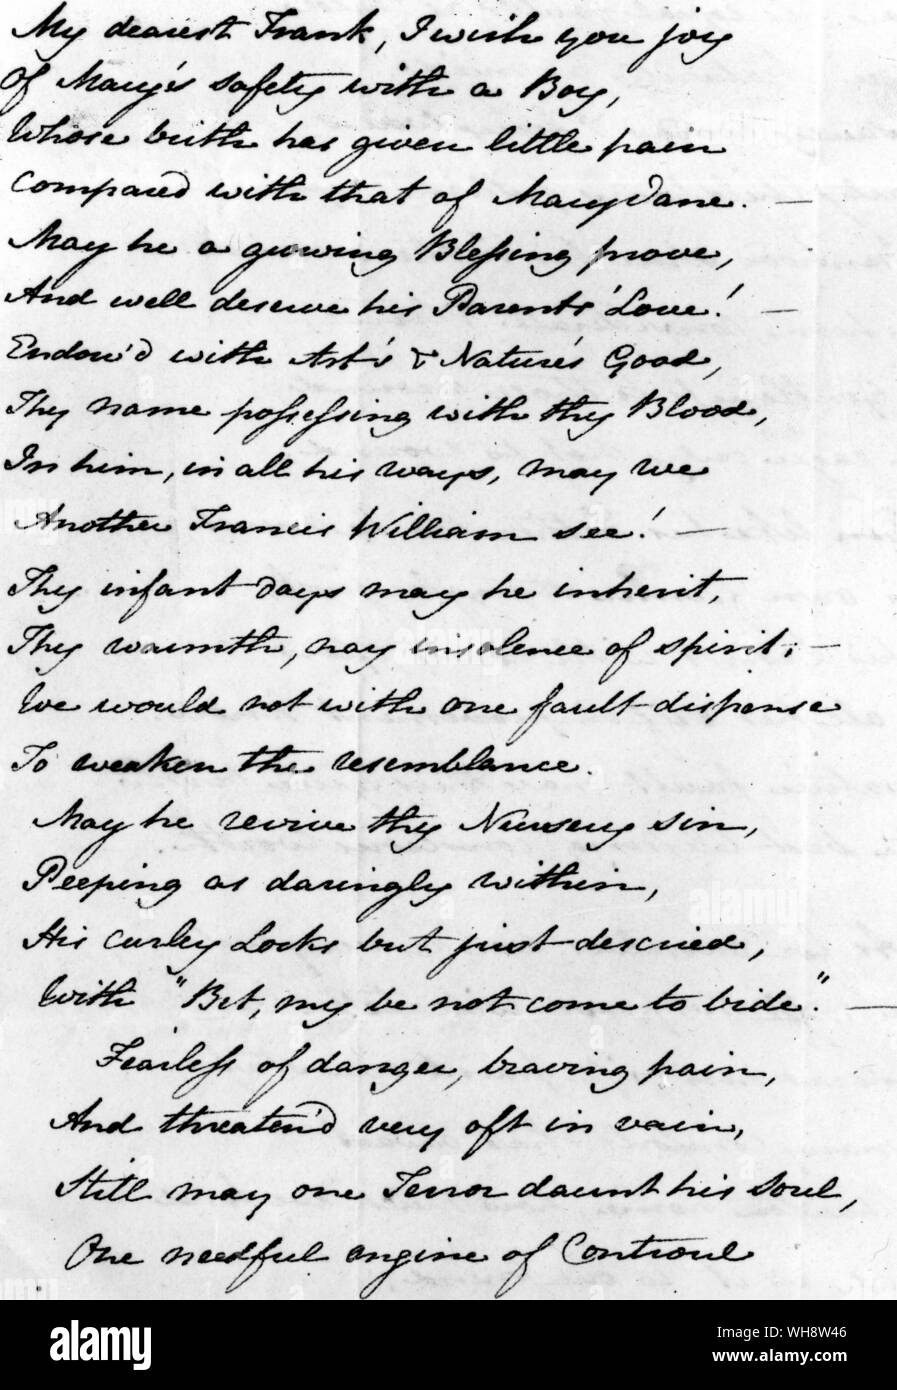 My dearest Frank, I wish you joy
Of Mary's safety with a Boy,
Whose birth has given little pain
Compared with that of Mary Jane. —
May he a growing Blessing prove,
And well deserve his Parents' Love! —
Endow'd with Art's & Nature's Good,
Thy name possessing with thy Blood,
In him, in all his ways, may we
Another Francis William see! —
Thy infant days may he inherit,
Thy warmth, nay insolence of spirit; —
We would not with one fault dispense
To weaken the resemblance.
May he revive thy Nursery sin,
Peeping as daringly within,
His curley Locks but just descried,
With "Bet, my be not come to bide." —
Fearless of danger, braving pain,
And threaten'd very oft in vain,
Still may one Terror daunt his soul,
One needful engine of Controul
alamy
Image ID: WH8W46
www.alamy.com